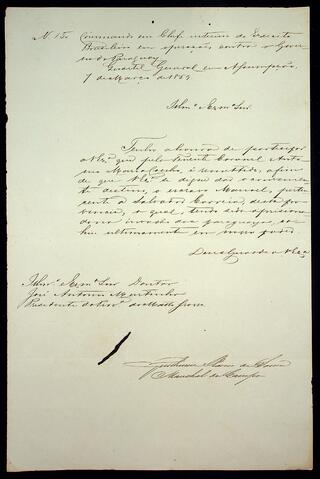 N. 15. Commando em Chefe interino do Exercito
Brasileiro em operações contra o Gover
no do Paraguay
Quartel General em Assumpção,
7 de Março de 1869.
Illmo. e Exmo. Snr.
Tenho a honra de participar
a V. Exa. que pelo Tenente Coronel Anto
nio Maria Coelho, é remettido, afim
de que V. Exa. se digne dar conveniente
destino, o escravo Manoel, perten
cente a Salvador Corrêa, desta pro
vincia, o qual, tendo sido aprisiona
do na invasão dos paraguayos, ca
hiu ultimamente em nosso poder.
Deus Guarde a V. Exa.
Illmo. e Exmo. Snr. Doutor
José Antonio Murtinho
Presidente da Prova. de Matto Grosso
Guilherme Xavier de Souza
Marechal de Campo